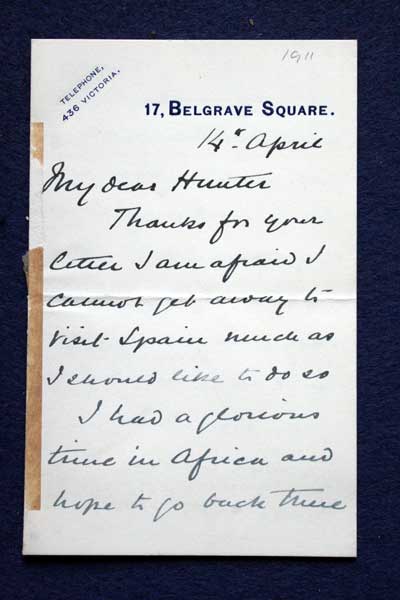 1911
TELEPHONE,
436 VICTORIA.
17, BELGRAVE SQUARE.
14th April
My dear Hunter
Thanks for your
letter I am afraid I
cannot get away to
visit Spain much as
I should like to do so
I had a glorious
time in Africa and
hope to go back there